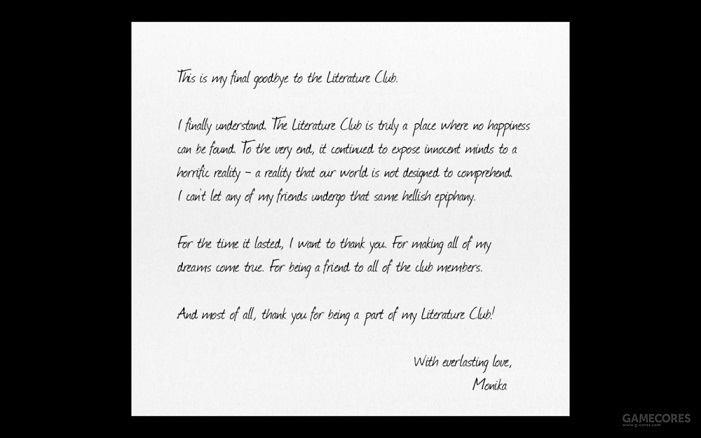 This is my final goodbye to the Literature Club.
I finally understand. The Literature Club is truly a place where no happiness
can be found. To the very end, it continued to expose innocent minds to a
horrific reality - a reality that our world is not designed to comprehend.
I can't let any of my friends undergo that same hellish epiphany.
For the time it lasted, I want to thank you. For making all of my
dreams come true. For being a friend to all of the club members.
And most of all, thank you for being a part of my Literature Club!
With everlasting love,
Monika
GAMECORES
www.g-cores.com